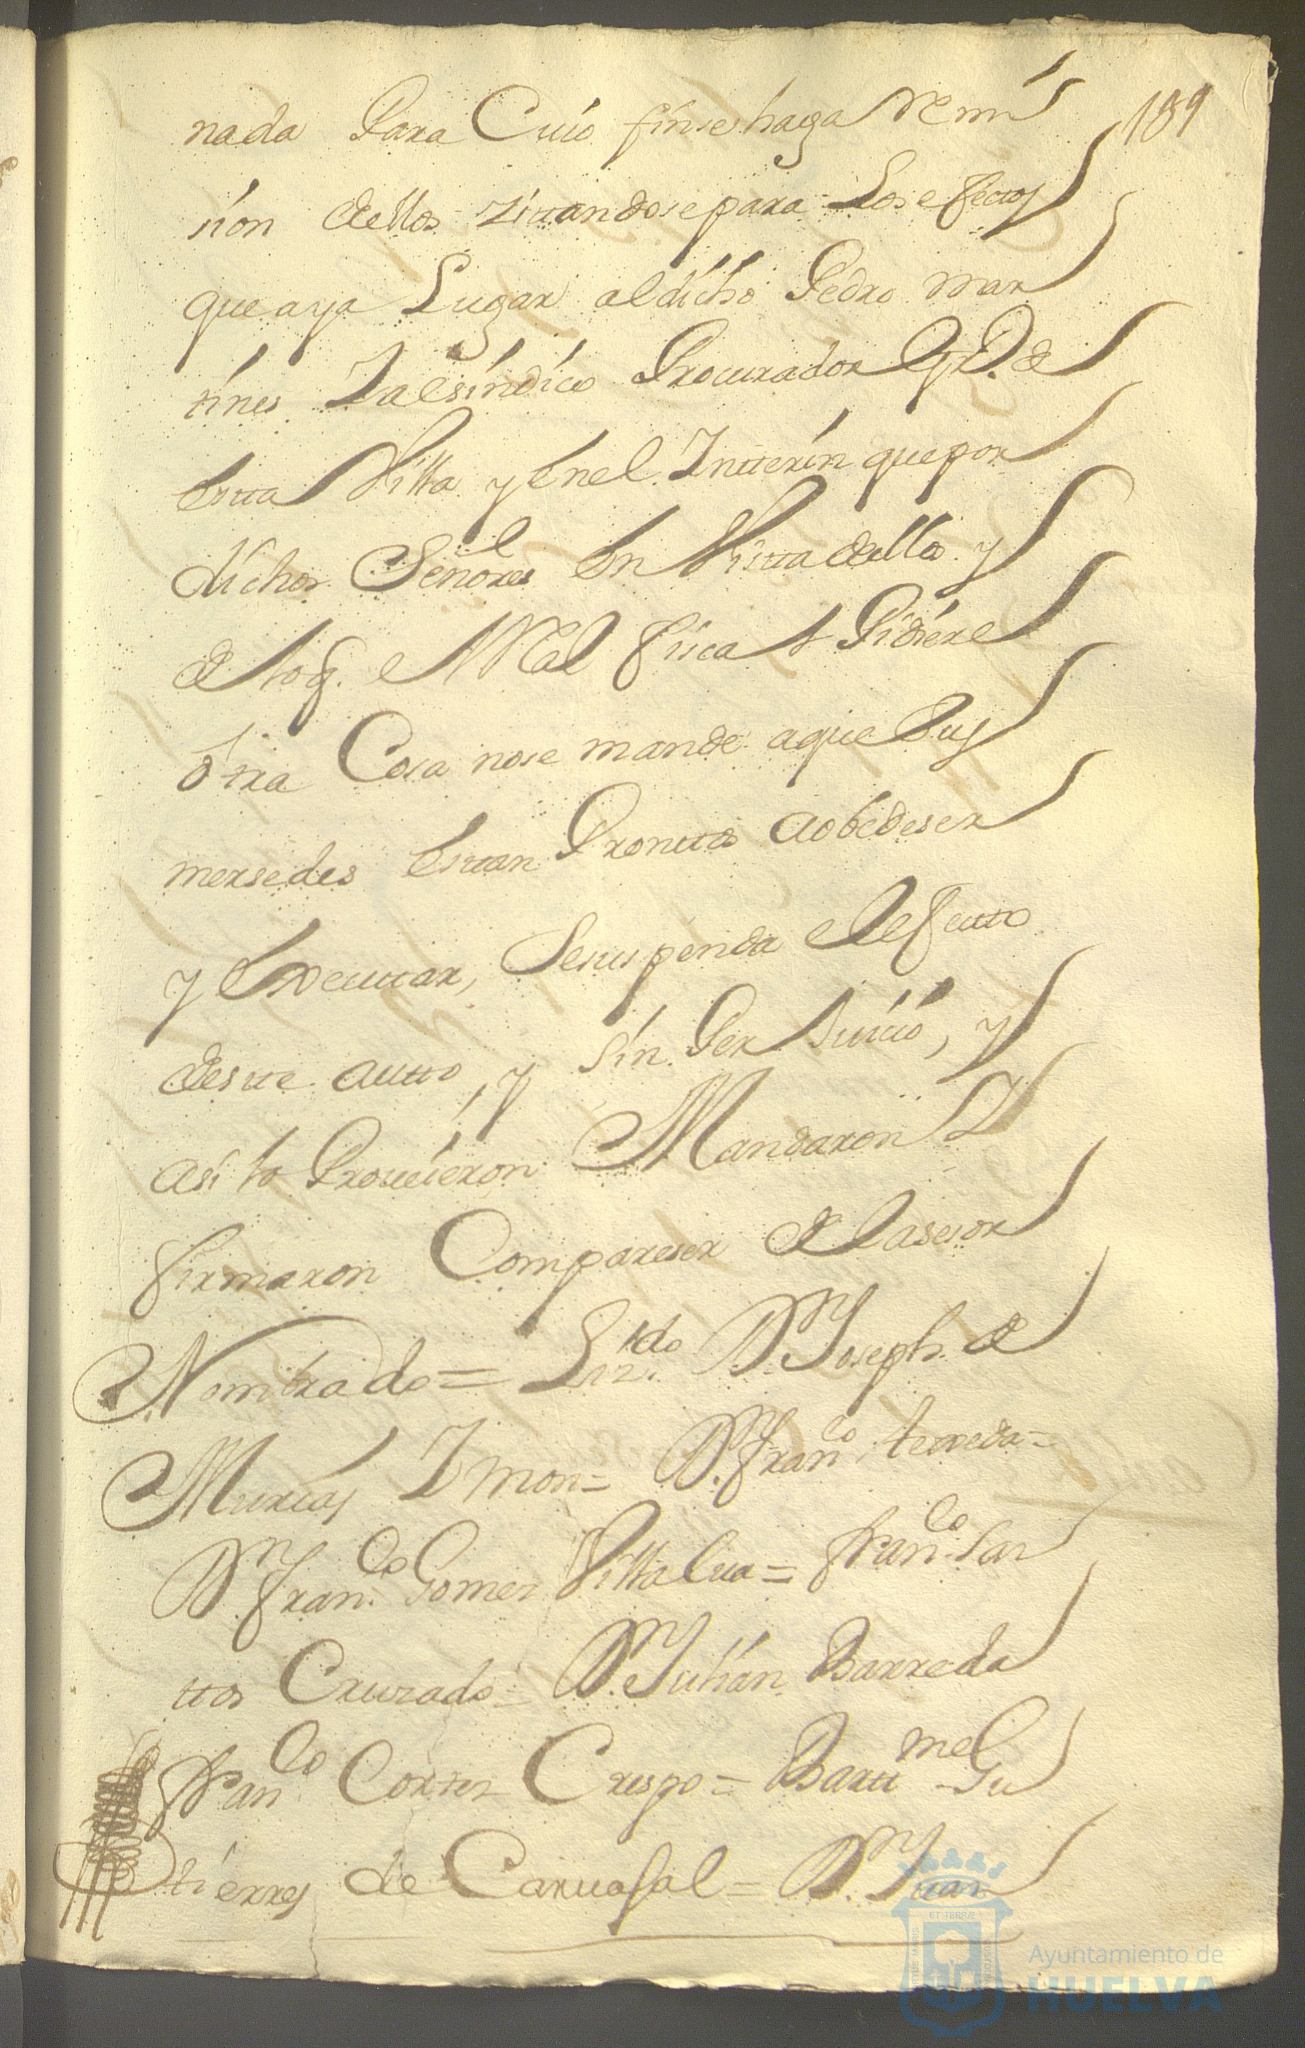 189
nada Para Cuio fin se haga remi
sion dellos zittandose para Los efectos
que aya Lugar al dicho Pedro mar
tines Y al sindico Procurador Grl. de
estta Villa y en el Intterin que por
dichos Señores en Vistta dello y
de lo q. el Rl fiscal Pidiere
otra Cosa no se mande a que Sus
mersedes esttan Prontto a obedeser
y Executtar, Se suspenda el efectto
desste autto, y sin Perjuicio, y
asi lo Proveieron Mandaron Y
firmaron Compareser del asesor
Nombrado = Lizdo. Dn. Joseph de
Murias Ymon = Dn. Franco. texeda =
Dn. Franco. Gomez Villalua = Franco. San
ttos Cruzado = Dn. Julian Barreda
Franco. Cortez Crespo = Bartme. Gu
tierres de Caruajal = Dn. Juan
Ayuntamiento de
HUELVA